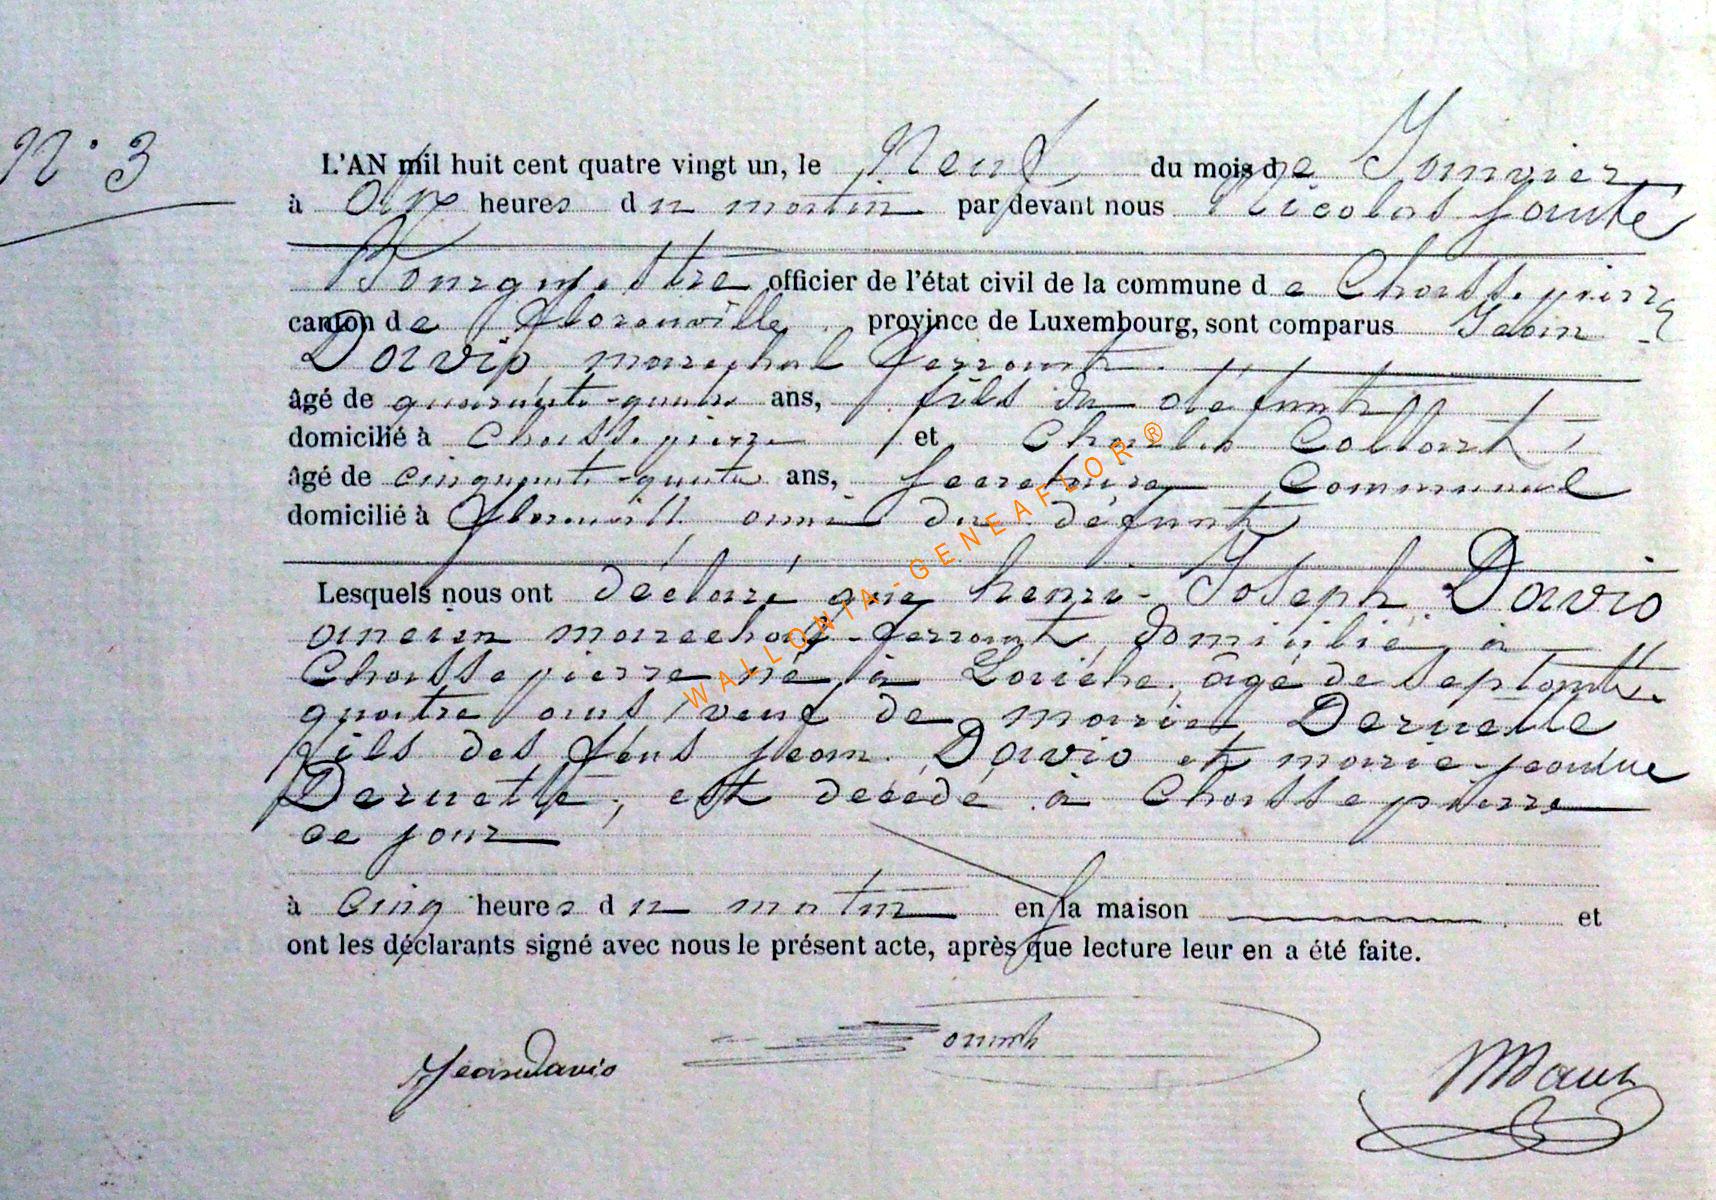 N° 3
L'AN mil huit cent quatre vingt un, le Neuf du mois de Janvier
à dix heures du matin par devant nous Nicolas
Bourgmestre officier de l'état civil de la commune de Chassepierre
canton de Florenville province de Luxembourg, sont comparus Jean
Davio, marechal ferrant
âgé de quarante-quatre ans, fils du défunt
domicilié à Chassepierre et Charles Collart
âgé de cinquante-quatre ans, Secretaire Communal
domicilié à Florenville ami du défunt
Lesquels nous ont déclaré que henri-Joseph Davio
ancien marechal-ferrant, domicilié à
Chassepierre né à Laiche, âgé de septante
quatre ans, veuf de marie Deruette
fils des feus jean Davio et marie-jeanne
Deruette, est décédé à Chassepierre
ce jour
à cinq heures du matin en sa maison et
ont les déclarants signé avec nous le présent acte, après que lecture leur en a été faite.
Jean Davio
WALLONIA-GENEAFLOR®